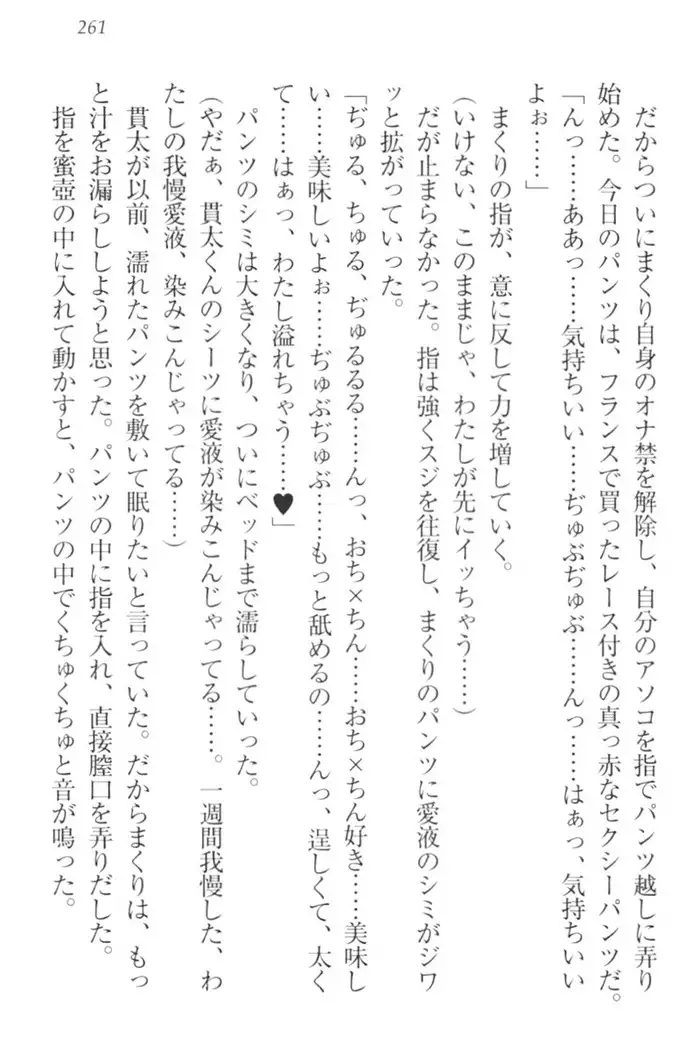 261
だからついにまくり自身のオナ禁を解除し、自分のアソコを指でパンツ越しに弄り
始めた。今日のパンツは、フランスで買ったレース付きの真っ赤なセクシーパンツだ。
「んっ……ああっ……気持ちいい……ぢゅぶぢゅぶ……んっ……はぁっ、気持ちいい
よぉ……」
まくりの指が、意に反して力を増していく。
(いけない、このままじゃ、わたしが先にイッちゃう……)
だが止まらなかった。指は強くスジを往復し、まくりのパンツに愛液のシミがジワ
ッと拡がっていった。
「ぢゅる、ちゅる、ぢゅるるる……んっ、おち×ちん……おち×ちん好き……美味し
い……美味しいよぉ……ぢゅぶぢゅぶ……もっと舐めるの……んっ、逞しくて、太く
て……はぁっ、わたし溢れちゃう……♥」
パンツのシミは大きくなり、ついにベッドまで濡らしていった。
(やだぁ、貫太くんのシーツに愛液が染みこんじゃってる……。一週間我慢した、わ
たしの我慢愛液、染みこんじゃってる……)
貫太が以前、濡れたパンツを敷いて眠りたいと言っていた。だからまくりは、もっ
と汁をお漏らししようと思った。パンツの中に指を入れ、直接膣口を弄りだした。
指を蜜壺の中に入れて動かすと、パンツの中でくちゅくちゅと音が鳴った。